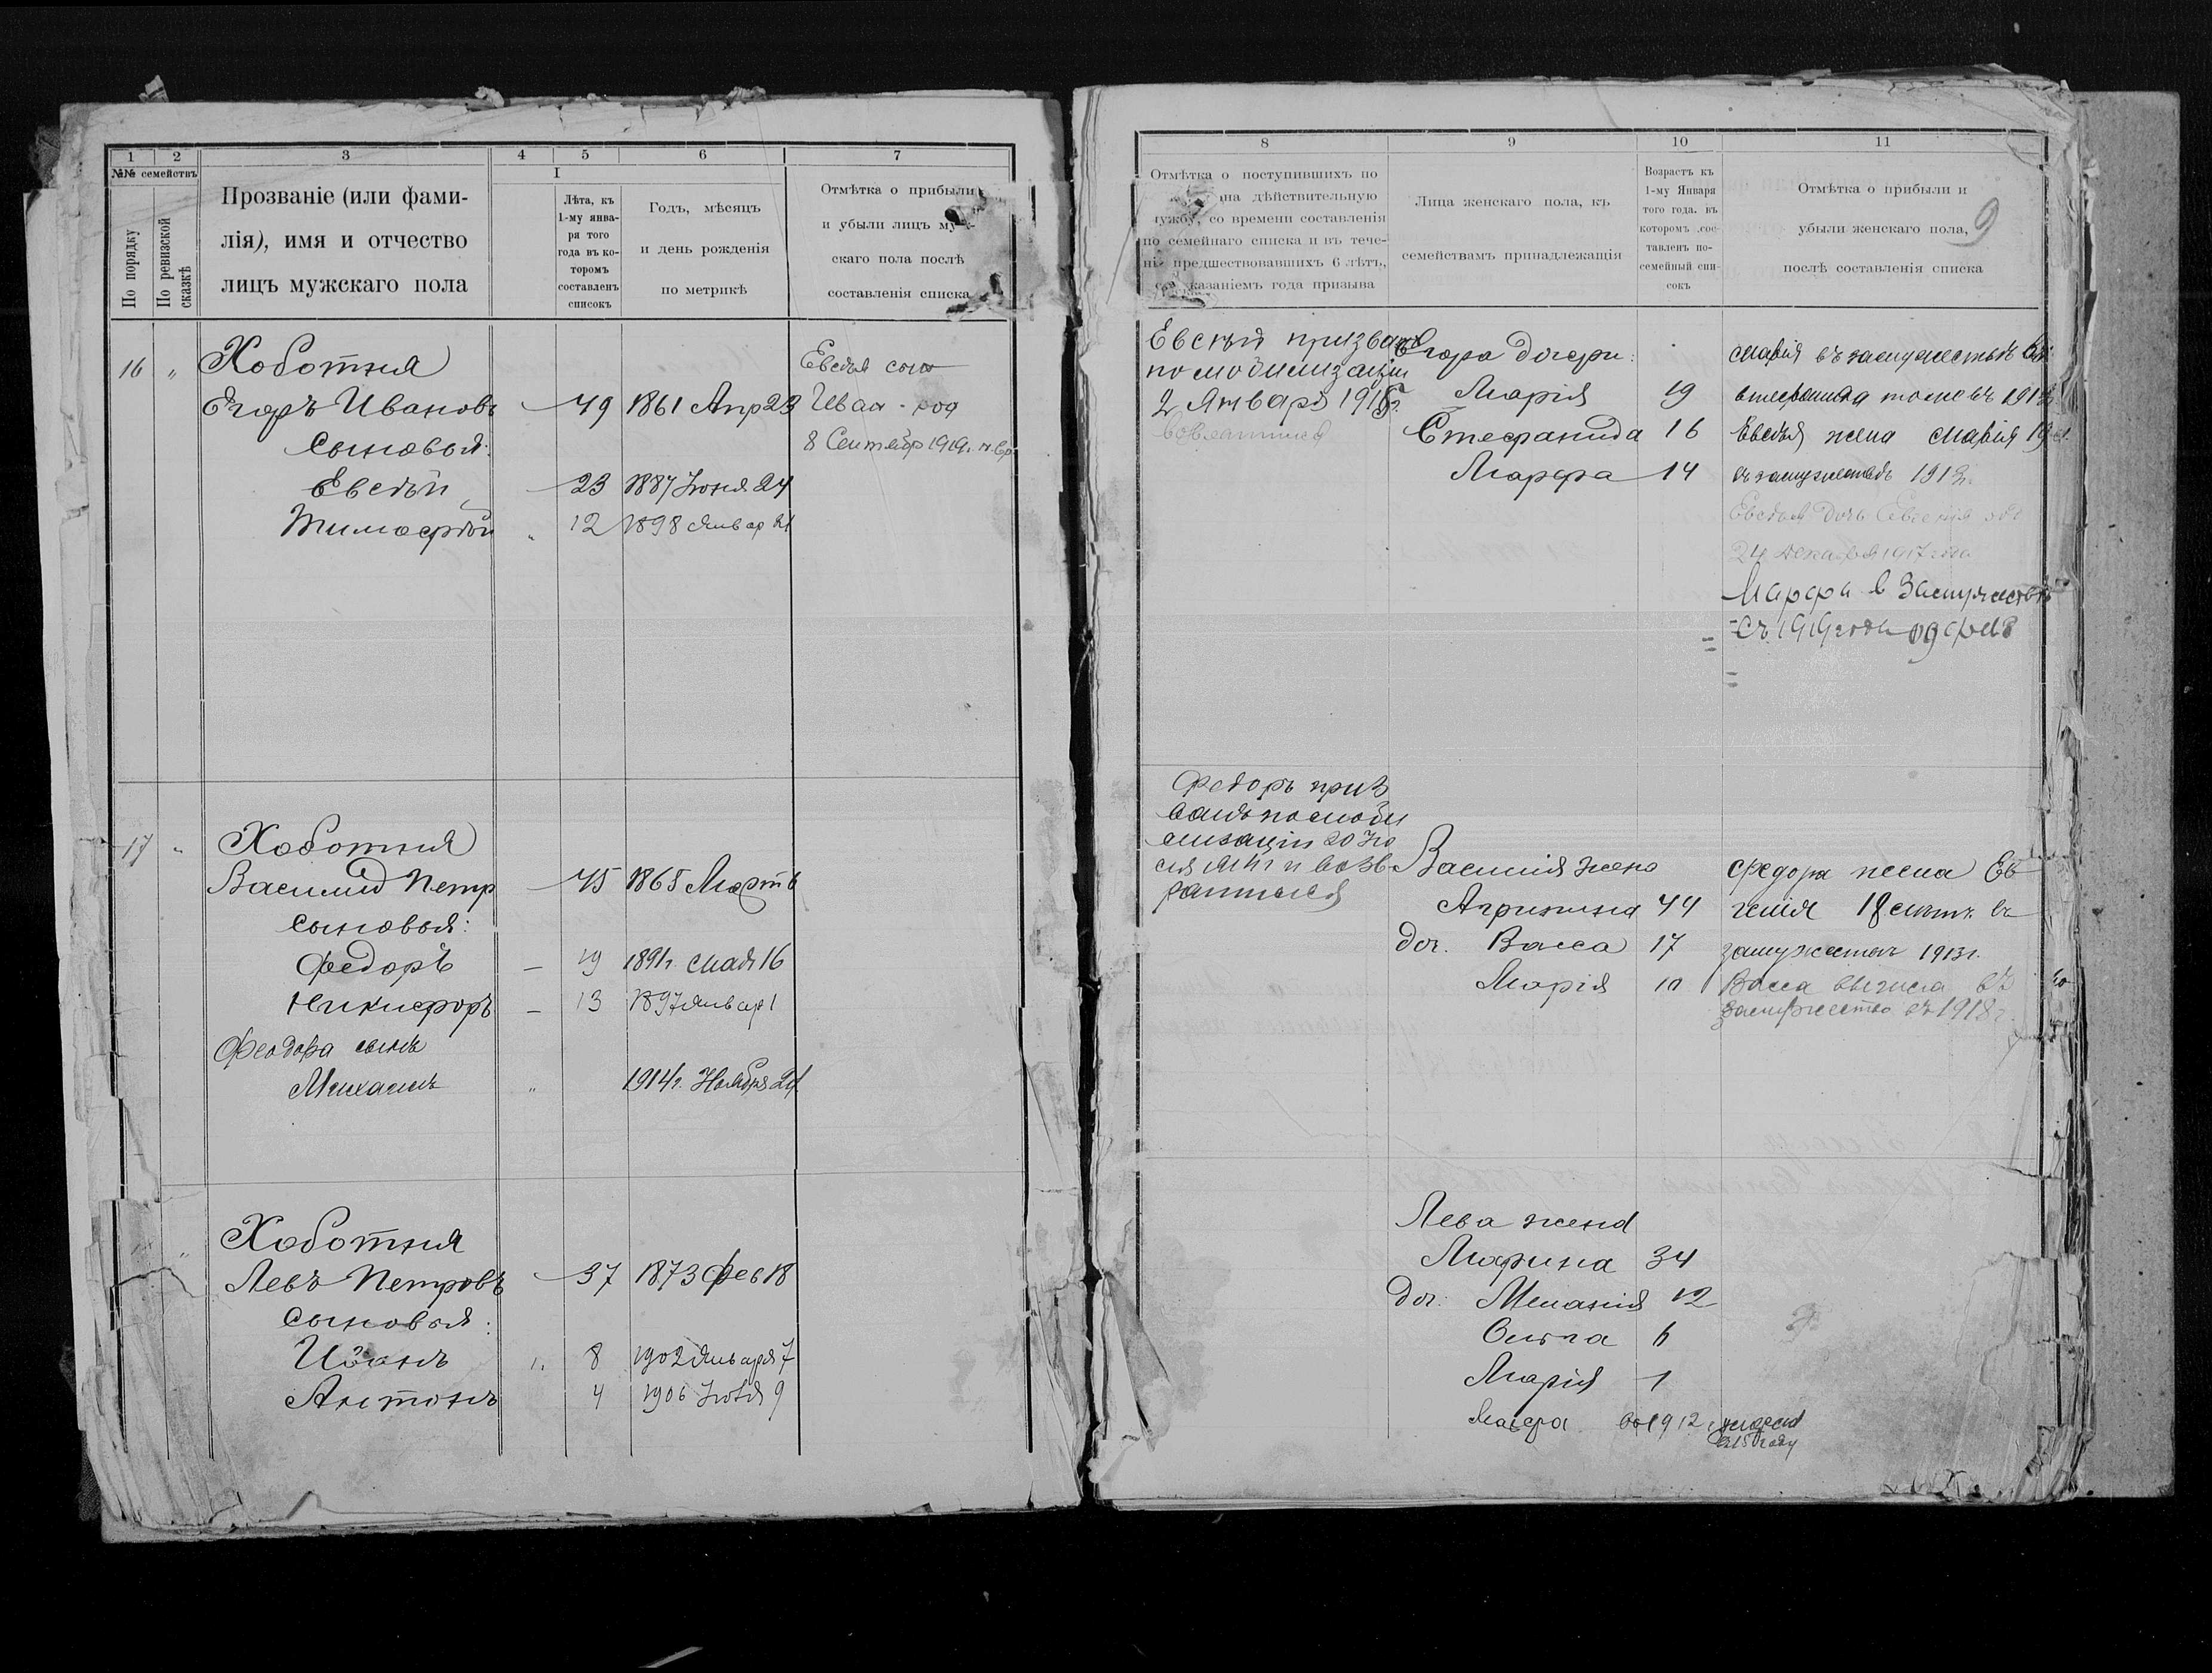 1 2 3 4 5 6 7
№№ семействъ
По порядку
По ревизской сказкѣ
Прозваніе (или фами-
лія), имя и отчество
лицъ мужскаго пола
I
Лѣта, къ
1-му янва-
ря того
года въ ко-
торомъ
составленъ
списокъ
Годъ, мѣсяцъ
и день рожденія
по метрикѣ
Отмѣтка о прибыли
и убыли лицъ му
скаго пола послѣ
составленія списка
16 " Хоботня
Егоръ Ивановъ 49 1861 Апр 23
сыновья:
Евсѣй 23 1887 Іюня 24
Тимофѣй " 12 1898 Январ 21
Евсѣя сынъ
Иван род
8 Сентябр 1919г.
17 " Хоботня
Василій Петр 45 1865 Март 6
сыновья:
Федоръ 19 1891г. Мая 16
Никифоръ 13 1897 Январ 1
Феодора сынъ
Михаилъ " 1914г. Ноября 21
" Хоботня
Левъ Петровъ 37 1873 Фев 18
сыновья:
Иванъ " 8 1902 Января 7
Антонъ 4 1906 Іюля 9
8 9 10 11
Отмѣтка о поступившихъ по
на дѣйствительную
службу, со времени составленія
по семейнаго списка и въ тече-
ніе предшествовавшихъ 6 лѣтъ,
казаніемъ года призыва
Лица женскаго пола, къ
семействамъ принадлежащія
Возрастъ къ
1-му Января
того года. въ
которомъ сос-
тавленъ по-
семейный спи-
сокъ
Отмѣтка о прибыли и
убыли женскаго пола,
послѣ составленія списка
9
Евсѣй призванъ
по мобилизаціи
2 Январь
Егора дочери:
Марія 19
Стефанида 16
Марфа 14
Марія въ замужествѣ
Стефанида тоже въ
Евсѣя жена Марія
въ замужествѣ 1913г.
Евсѣя дочь Евгенія
24 Декабря 1917 года
Марфа в Замужествѣ
съ 1919 года
Федоръ приз
ванъ по моби
лизаціи 20 Ію
ля и возв
ратился
Василія жена
Агрипина 44
доч. Васса 17
Марія 10
Федора жена Ев
генія 18 лѣтъ въ
замужествѣ 1913г.
Васса вышла въ
замужество въ 1918г.
Лева жена
Марина 34
доч: Меланія 12
Ольга 6
Марія 1
Марфа 1912
году